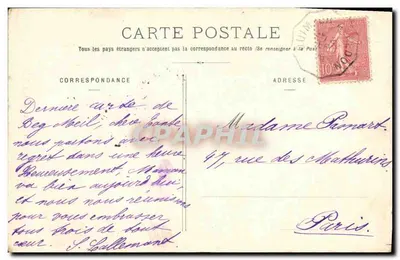 CARTE POSTALE
Tous les pays étrangers n'acceptent pas la correspondance au recto (Se renseigner à la Poste)
CORRESPONDANCE
ADRESSE
Dernière de
Beg Meil, chère
nous partons avec
regret dans une heure
Heureusement, Maman
va bien aujourd'hui
et nous nous réunissons
pour vous embrasser
tous trois de tout
cœur. S. Lallemant
Madame Pronart
47, rue des Mathurins
Paris.
10